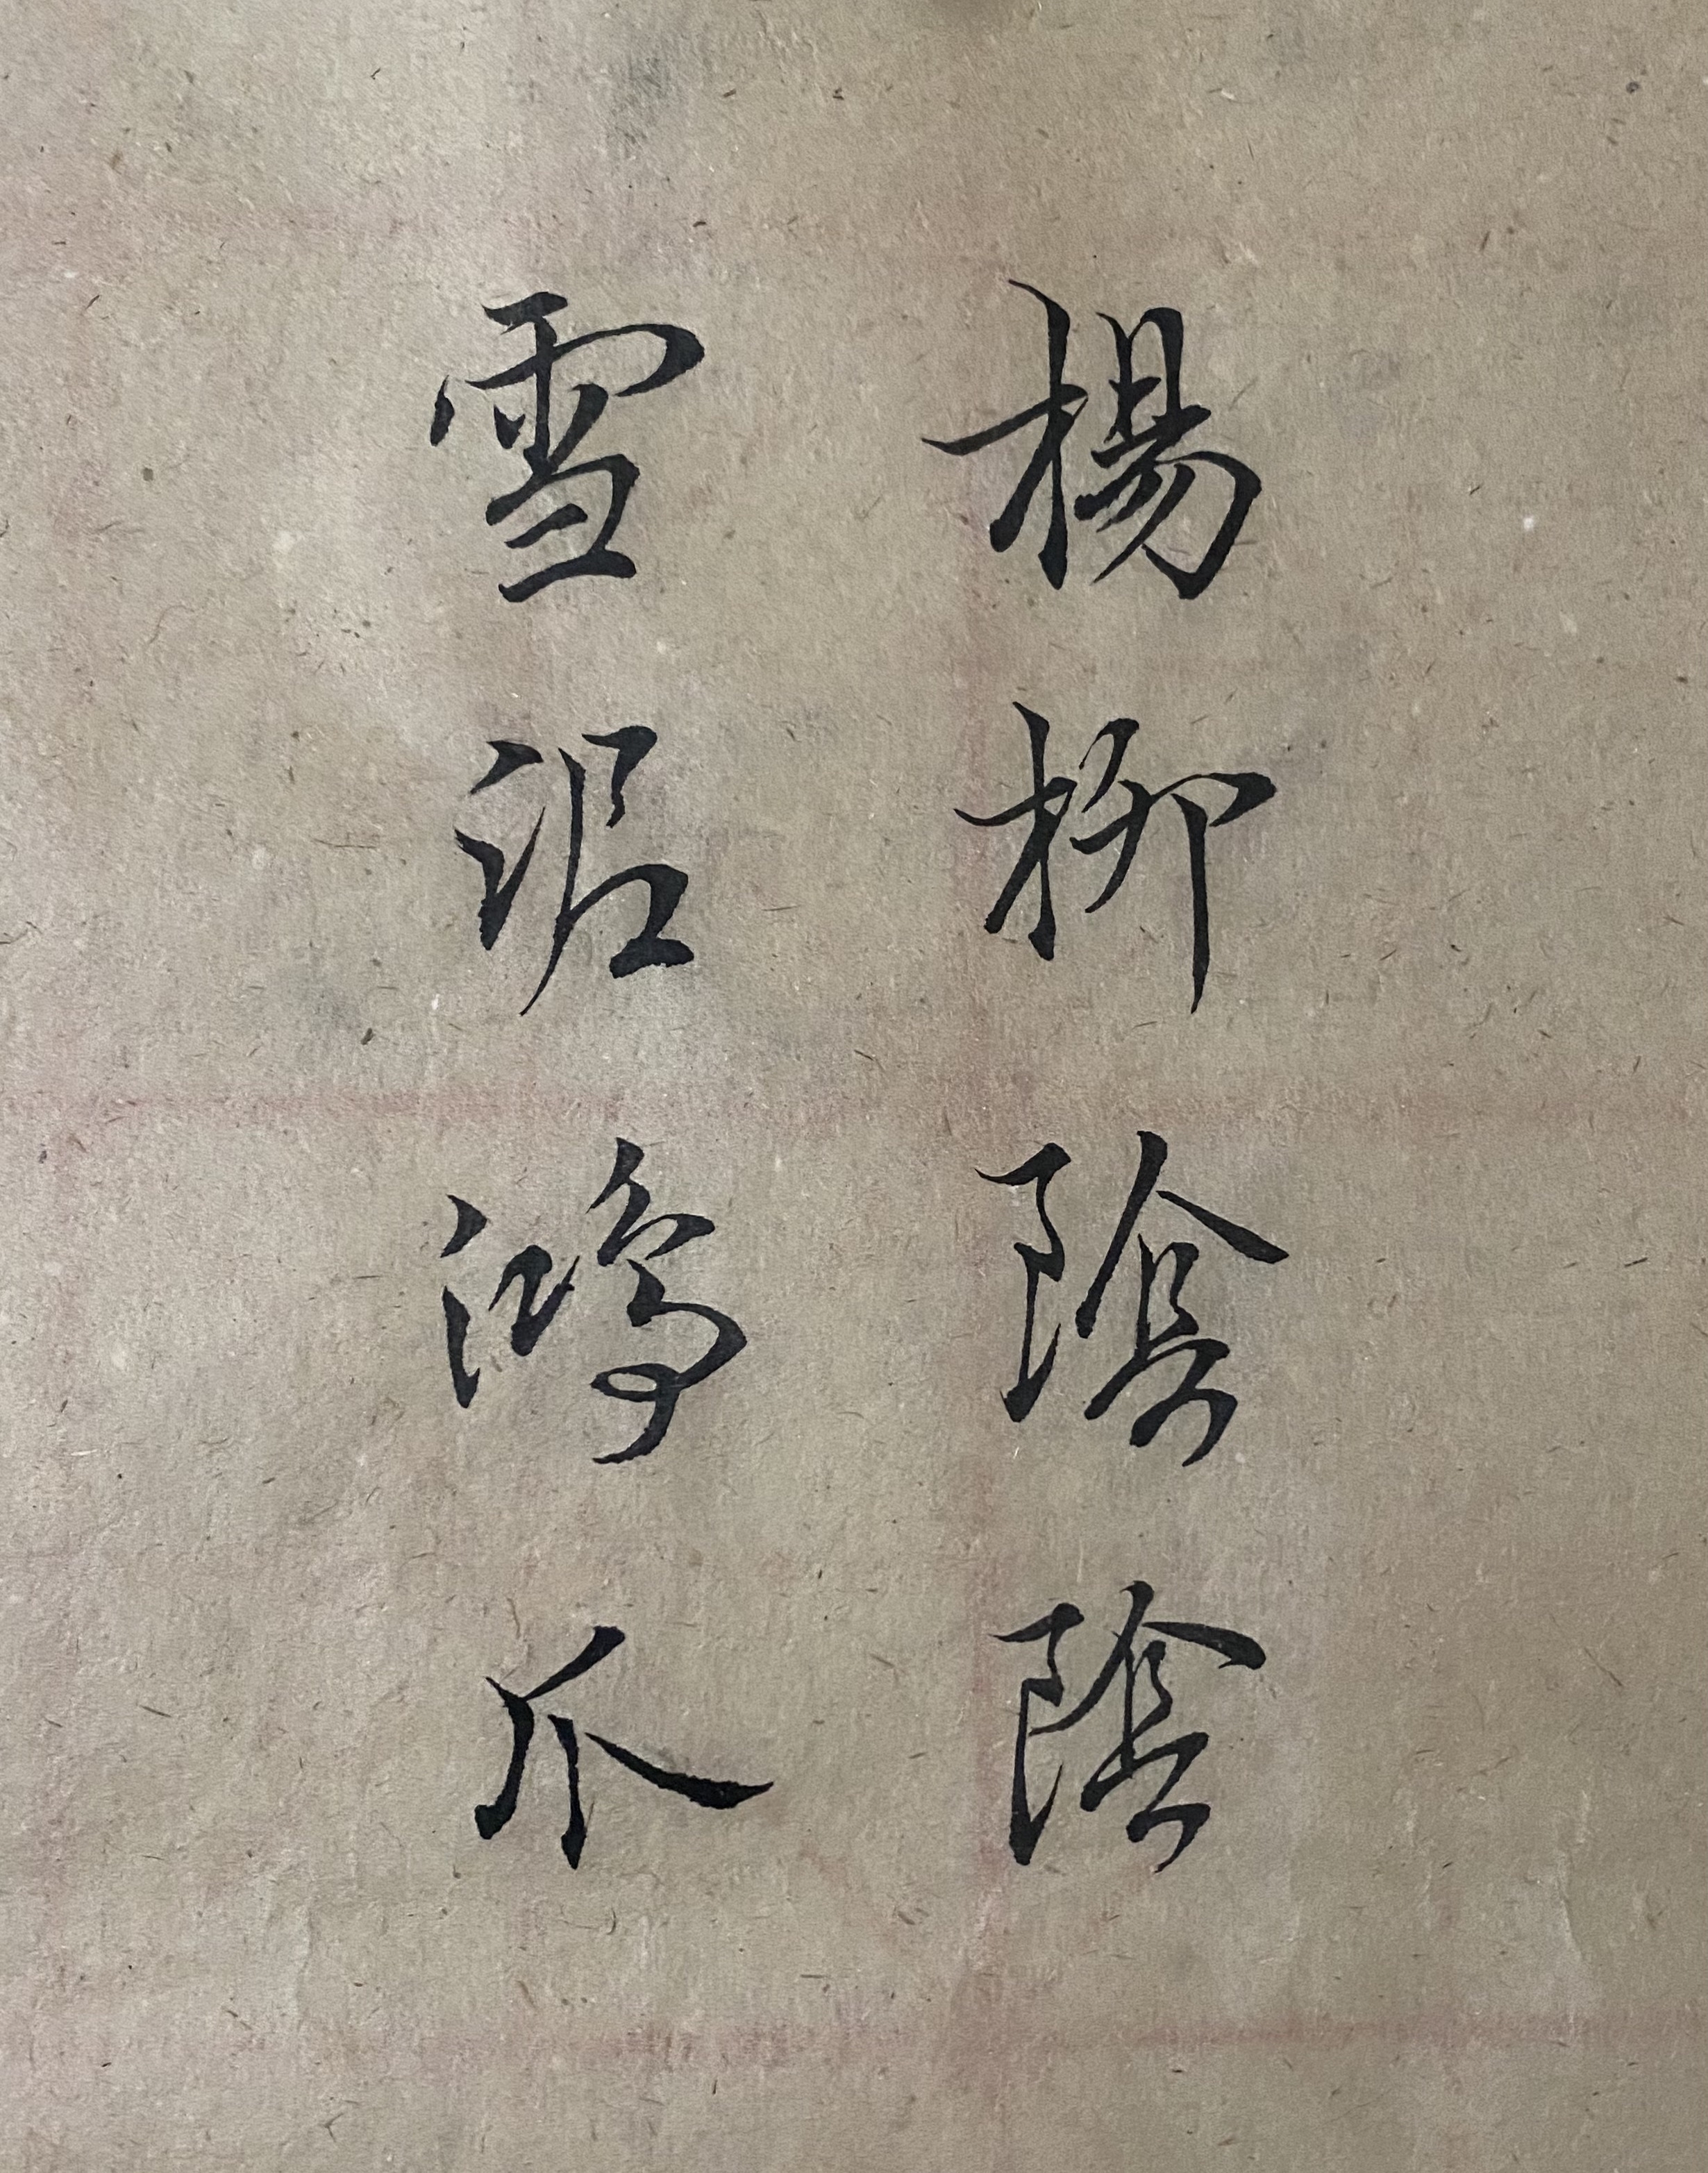 楊柳陰陰
雪泥鴻爪